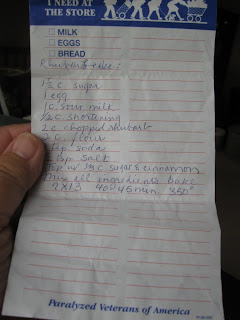 I NEED AT
THE STORE
MILK
EGGS
BREAD
Rhubarb cake:
1½ c sugar
1 egg
1 c. sour milk
½ c. shortening
2 c chopped rhubarb
2 c. flour
1 tsp soda
tsp salt
Top w/ ½ c sugar & cinnamon
all ingredients bake
9X13 40-45 min. 350°
Paralyzed Veterans of America